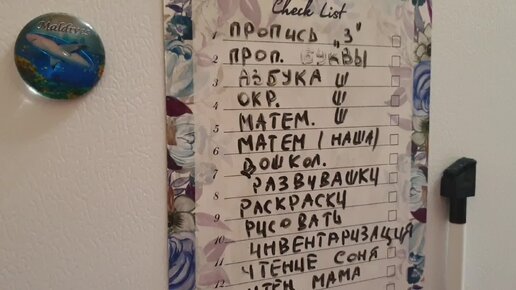 Maldives
Check List
1 ПРОПИСЬ „З"
2 ПРОП. БУКВЫ
3 АЗБУКА Ш
4 ОКР. Ш
5 МАТЕМ. Ш
6 МАТЕМ (НАША)
7 ДОШКОЛ.
8 РАЗВИВАШКИ
9 РАСКРАСКИ
10 РИСОВАТЬ
11 ИНВЕНТАРИЗАЦИЯ
12 ЧТЕНИЕ СОНЯ
ЧТЕН МАМА